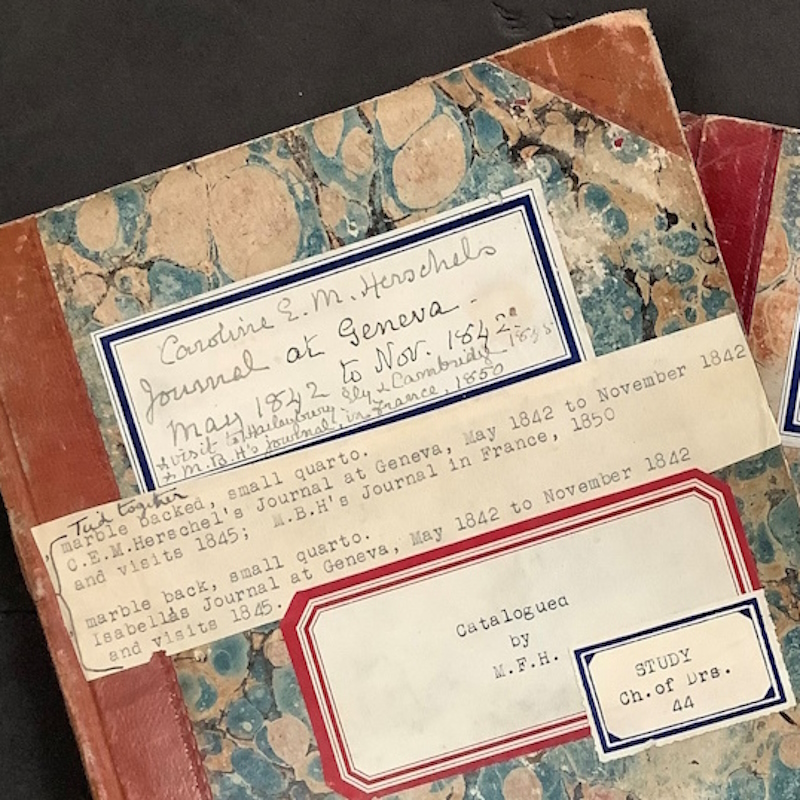 Caroline E. M. Herschels
Journal at Geneva -
May 1842 to Nov. 1842.
& visit to Haileybury, Ely & Cambridge 1845
& M.B.H's journal, in France, 1850
Tied together
marble backed, small quarto.
C.E.M.Herschel's Journal at Geneva, May 1842 to November 1842
and visits 1845; M.B.H's Journal in France, 1850
marble back, small quarto.
Isabella's Journal at Geneva, May 1842 to November 1842
and visits 1845.
Catalogued
by
M.F.H.
STUDY
Ch.of Drs.
44